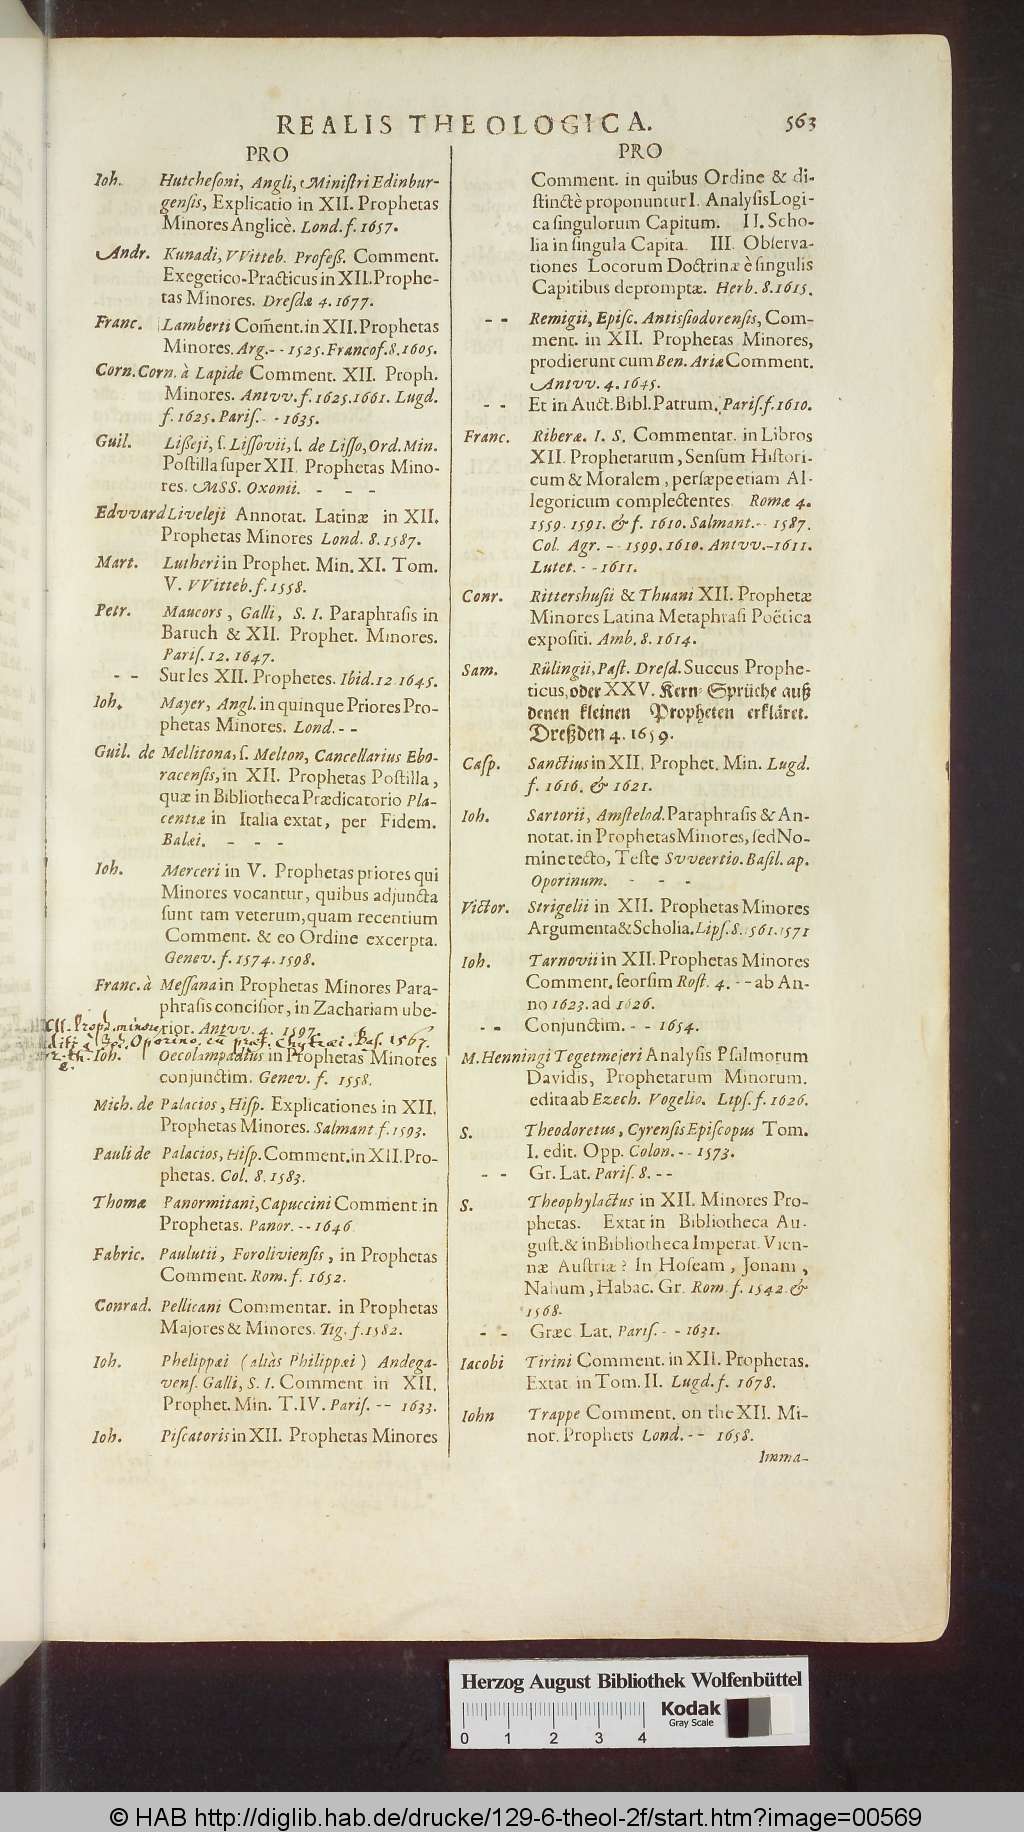 REALIS THEOLOGICA. 563
PRO
Ioh. Hutchesoni, Angli, Ministri Edinbur-
gensis, Explicatio in XII. Prophetas
Minores Anglicè. Lond. f. 1657.
Andr. Kunadi, VVitteb. Profess. Comment.
Exegetico-Practicus in XII. Prophe-
tas Minores. Dresdæ 4. 1677.
Franc. Lamberti Com̄ent. in XII. Prophetas
Minores. Arg. - - 1525. Francof. 8. 1605.
Corn. Corn. à Lapide Comment. XII. Proph.
Minores. Antvv. f. 1625. 1661. Lugd.
f. 1625. Paris. - - 1635.
Guil. Lißeji, s. Lissovii, s. de Lisso, Ord. Min.
Postilla super XII. Prophetas Mino-
res. MSS. Oxonii. - - -
Edvvard Liveleji Annotat. Latinæ in XII.
Prophetas Minores Lond. 8. 1587.
Mart. Lutheri in Prophet. Min. XI. Tom.
V. VVitteb. f. 1558.
Petr. Maucors, Galli, S. I. Paraphrasis in
Baruch & XII. Prophet. Minores.
Paris. 12. 1647.
- - Sur les XII. Prophetes. Ibid. 12 1645.
Ioh. Mayer, Angl. in quinque Priores Pro-
phetas Minores. Lond. - -
Guil. de Mellitona, s. Melton, Cancellarius Ebo-
racensis, in XII. Prophetas Postilla,
quæ in Bibliotheca Prædicatorio Pla-
centiæ in Italia extat, per Fidem.
Balæi. - - -
Ioh. Merceri in V. Prophetas priores qui
Minores vocantur, quibus adjuncta
sunt tam veterum, quam recentium
Comment. & eo Ordine excerpta.
Genev. f. 1574. 1598.
Franc. à Messana in Prophetas Minores Para-
phrasis concisior, in Zachariam ube-
rior. Antvv. 4. 1597.
Proph. minores
Oporino, cū præf. Chytræi. Bas. 1567.
Ioh. Oecolampadius in Prophetas Minores
conjunctim. Genev. f. 1558.
Mich. de Palacios, Hisp. Explicationes in XII.
Prophetas Minores. Salmant f. 1593.
Pauli de Palacios, Hisp. Comment. in XII. Pro-
phetas. Col. 8. 1583.
Thomæ Panormitani, Capuccini Comment in
Prophetas. Panor. - - 1646
Fabric. Paulutii, Foroliviensis, in Prophetas
Comment. Rom. f. 1652.
Conrad. Pellicani Commentar. in Prophetas
Majores & Minores. Tig. f. 1582.
Ioh. Phelippæi (aliàs Philippæi) Andega-
vens. Galli, S. I. Comment in XII.
Prophet. Min. T. IV. Paris. - - 1633.
Ioh. Piscatoris in XII. Prophetas Minores
PRO
Comment. in quibus Ordine & di-
stinctè proponuntur I. Analysis Logi-
ca singulorum Capitum. II. Scho-
lia in singula Capita. III. Observa-
tiones Locorum Doctrinæ è singulis
Capitibus depromptæ. Herb. 8. 1615.
- - Remigii, Episc. Antissiodorensis, Com-
ment. in XII. Prophetas Minores,
prodierunt cum Ben. Ariæ Comment.
Antvv. 4. 1645.
- - Et in Auct. Bibl. Patrum. Paris. f. 1610.
Franc. Riberæ. I. S. Commentar. in Libros
XII. Prophetarum, Sensum Histori-
cum & Moralem, persæpe etiam Al-
legoricum complectentes Romæ 4.
1559. 1591. & f. 1610. Salmant. - - 1587.
Col. Agr. - - 1599. 1610. Antvv. - 1611.
Lutet. - - 1611.
Conr. Rittershusii & Thuani XII. Prophetæ
Minores Latina Metaphrasi Poëtica
expositi. Amb. 8. 1614.
Sam. Rülingii, Past. Dresd. Succus Prophe-
ticus, oder XXV. Kern-Sprüche auß
denen kleinen Propheten erkläret.
Dreßden 4. 1659.
Casp. Sanctius in XII. Prophet. Min. Lugd.
f. 1616. & 1621.
Ioh. Sartorii, Amstelod. Paraphrasis & An-
notat. in Prophetas Minores, sed No-
mine tecto, Teste Svveertio. Basil. ap.
Oporinum. - - -
Victor. Strigelii in XII. Prophetas Minores
Argumenta & Scholia. Lips. 8. 1561. 1571
Ioh. Tarnovii in XII. Prophetas Minores
Comment. seorsim Rost. 4. - - ab An-
no 1623. ad 1626.
- - Conjunctim. - - 1654.
M. Henningi Tegetmejeri Analysis Psalmorum
Davidis, Prophetarum Minorum.
edita ab Ezech. Vogelio. Lips. f. 1626.
S. Theodoretus, Cyrensis Episcopus Tom.
I. edit. Opp. Colon. - - 1573.
- - Gr. Lat. Paris. 8. - -
S. Theophylactus in XII. Minores Pro-
phetas. Extat in Bibliotheca Au-
gust. & in Bibliotheca Imperat. Vien-
næ Austriæ? In Hoseam, Jonam,
Nahum, Habac. Gr. Rom. f. 1542. &
1568.
- - Græc Lat. Paris. - - 1631.
Iacobi Tirini Comment. in XII. Prophetas.
Extat in Tom. II. Lugd. f. 1678.
Iohn Trappe Comment. on the XII. Mi-
nor. Prophets Lond. - - 1658.
Imma-
Herzog August Bibliothek Wolfenbüttel
Kodak
Gray Scale
0 1 2 3 4
© HAB http://diglib.hab.de/drucke/129-6-theol-2f/start.htm?image=00569